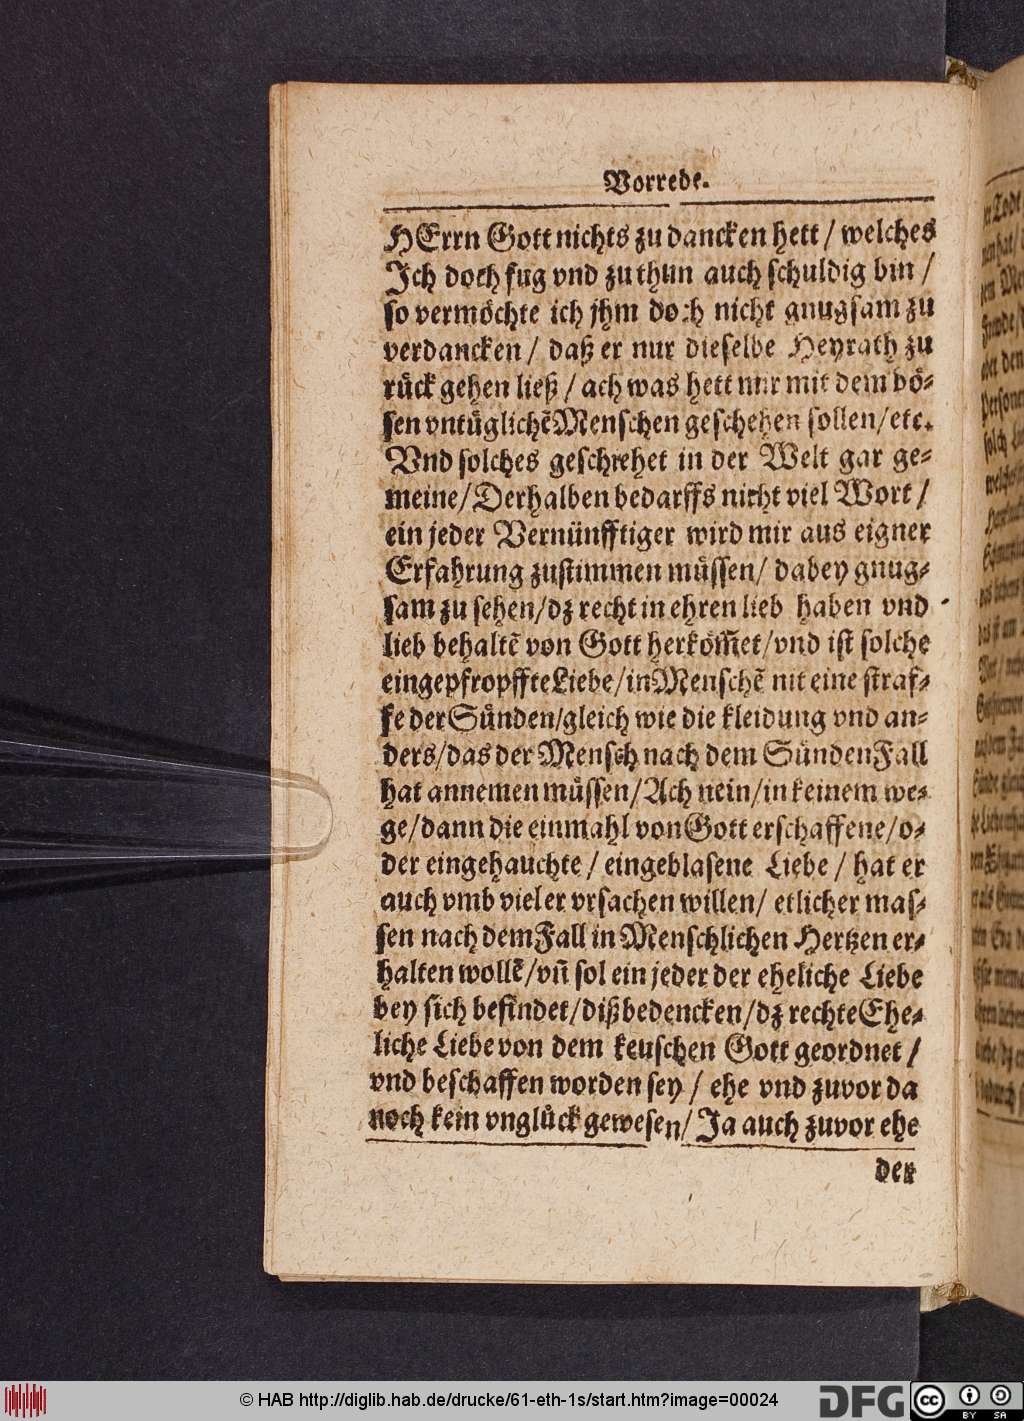 Vorrede.
HErrn Gott nichts zu dancken hett / welches
Ich doch fug vnd zu thun auch schuldig bin /
so vermöchte ich jhm doch nicht gnugsam zu
verdancken / daß er nur dieselbe Heyrath zu
rück gehen ließ / ach was hett mir mit dem bö-
sen vntüglichē Menschen geschehen sollen/etc.
Vnd solches geschiehet in der Welt gar ge-
meine/Derhalben bedarffs nicht viel Wort /
ein jeder Vernünfftiger wird mir aus eigner
Erfahrung zustimmen müssen/ dabey gnug-
sam zu sehen/dz recht in ehren lieb haben vnd
lieb behaltē von Gott herköm̃et/vnd ist solche
eingepfropffte Liebe/in Menschē nit eine straf-
fe der Sünden/gleich wie die kleidung vnd an-
ders/das der Mensch nach dem SündenFall
hat annemen müssen/Ach nein/in keinem we-
ge/dann die einmahl von Gott erschaffene/o-
der eingehauchte / eingeblasene Liebe / hat er
auch vmb vieler vrsachen willen/ etlicher mas-
sen nach dem Fall in Menschlichen Hertzen er-
halten wollē/vñ sol ein jeder der eheliche Liebe
bey sich befindet/diß bedencken/dz rechte Ehe-
liche Liebe von dem keuschen Gott geordnet /
vnd beschaffen worden sey / ehe vnd zuvor da
noch kein vnglück gewesen/ Ja auch zuvor ehe
der
© HAB http://diglib.hab.de/drucke/61-eth-1s/start.htm?image=00024
DFG
cc BY SA